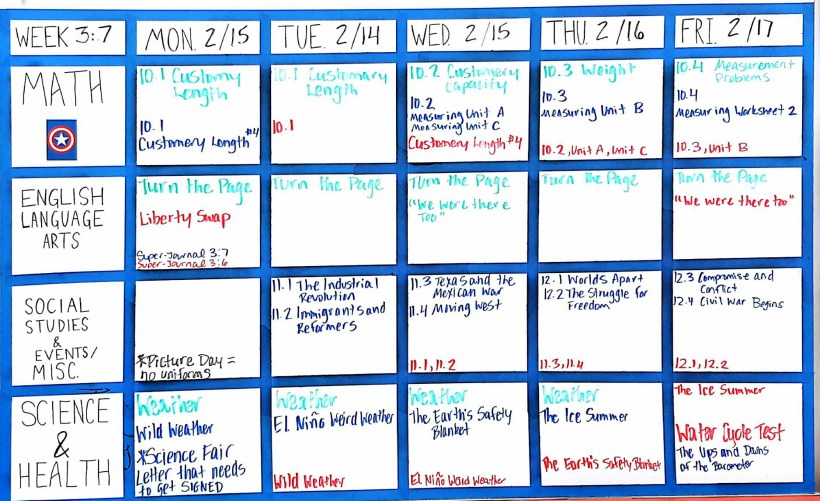 WEEK 3:7
MON. 2/15
TUE. 2/14
WED. 2/15
THU. 2/16
FRI. 2/17
MATH
10.1 Customy
Length
10.1
Customery Length #4
10.1 Customary
Length
10.1
10.2 Customery
Capacity
10.2
Measuring Unit A
Measuring Unit C
Customery Length #4
10.3 Weight
10.3
Measuring Unit B
10.2, Unit A, Unit C
10.4 Measurement
Problems
10.4
Measuring Worksheet 2
10.3, Unit B
ENGLISH
LANGUAGE
ARTS
Turn the Page
Liberty Swap
Super-Journal 3:7
Super-Journal 3:6
Turn the Page
Turn the Page
"We were there
Too"
Turn the Page
Turn the Page
"We were there too"
SOCIAL
STUDIES
&
EVENTS/
MISC.
*Picture Day =
no uniforms
11.1 The Industrial
Revolution
11.2 Immigrants and
Reformers
11.3 Texas and the
Mexican War
11.4 Moving West
11.1, 11.2
12.1 Worlds Apart
12.2 The Struggle for
Freedom
11.3, 11.4
12.3 Compromise and
Conflict
12.4 Civil War Begins
12.1, 12.2
SCIENCE
&
HEALTH
Weather
Wild Weather
*Science Fair
Letter that needs
to get SIGNED
Weather
El Niño Weird Weather
Wild Weather
Weather
The Earth's Safety
Blanket
El Niño Weird Weather
Weather
The Ice Summer
The Earth's Safety Blanket
The Ice Summer
Water Cycle Test
The Ups and Downs
of the Barometer